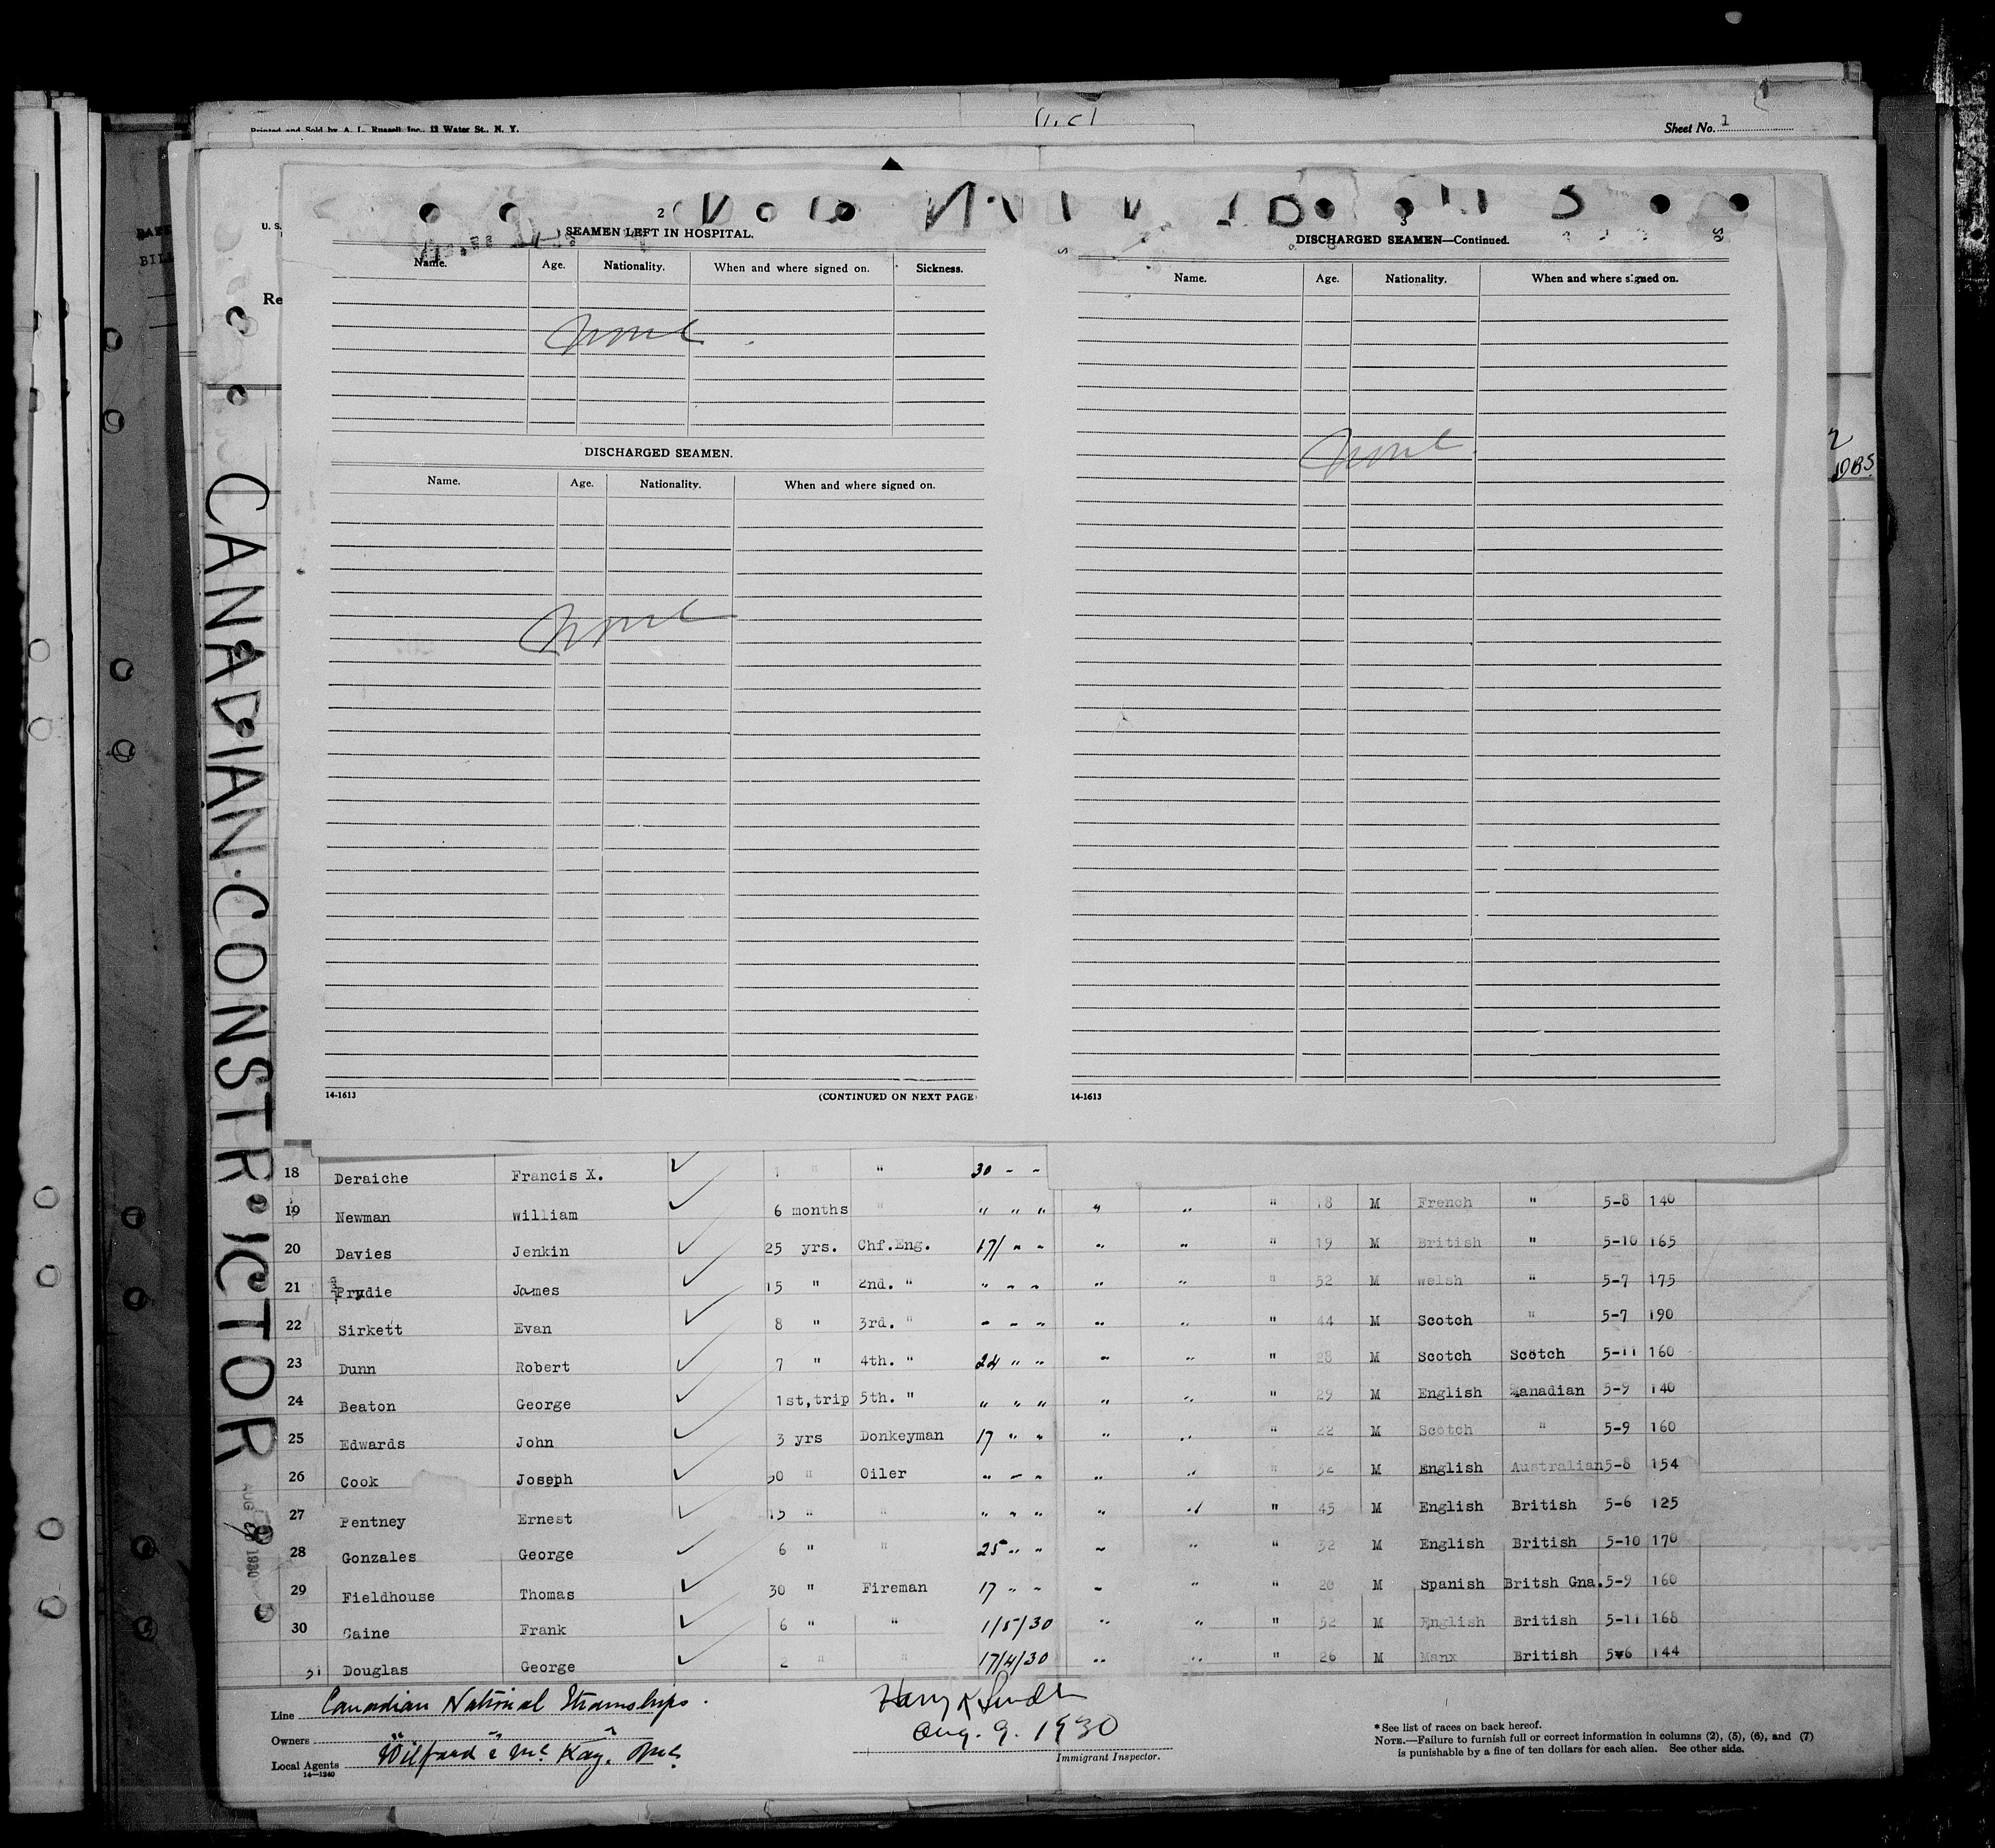 Printed and Sold by A. L. Russell Inc., 12 Water St., N. Y.
Sheet No. 1
U. S.
Re
CANADIAN·CONSTRICTOR
2
SEAMEN LEFT IN HOSPITAL.
Name. Age. Nationality. When and where signed on. Sickness.
None
DISCHARGED SEAMEN.
Name. Age. Nationality. When and where signed on.
None
14-1613 (CONTINUED ON NEXT PAGE
3
DISCHARGED SEAMEN—Continued.
Name. Age. Nationality. When and where signed on.
None
14-1613
18 Deraiche Francis X. ✓ 1 " " 30 " "
19 Newman William ✓ 6 months " " " " " " " 18 M French " 5-8 140
20 Davies Jenkin ✓ 25 yrs. Chf.Eng. 17/ " " " " " 19 M British " 5-10 165
21 Prydie James ✓ 15 " 2nd. " " " " " " " 52 M Welsh " 5-7 175
22 Sirkett Evan ✓ 8 " 3rd. " " " " " " " 44 M Scotch " 5-7 190
23 Dunn Robert ✓ 7 " 4th. " 24 " " " " " 28 M Scotch Scotch 5-11 160
24 Beaton George ✓ 1st,trip 5th. " " " " " " " 29 M English Kanadian 5-9 140
25 Edwards John ✓ 3 yrs Donkeyman 17 " " " " " 22 M Scotch " 5-9 160
26 Cook Joseph ✓ 30 " Oiler " " " " " " 32 M English Australian 5-8 154
27 Pentney Ernest ✓ 15 " " " " " " " " 45 M English British 5-6 125
28 Gonzales George ✓ 6 " " 25 " " " " " 32 M English British 5-10 170
29 Fieldhouse Thomas ✓ 30 " Fireman 17 " " " " " 20 M Spanish Britsh Gna. 5-9 160
30 Caine Frank ✓ 6 " " 1/5/30 " " " 52 M English British 5-11 168
31 Douglas George ✓ 2 " " 17/4/30 " " " 26 M Manx British 5-6 144
Line Canadian National Steamships.
Owners " " "
Local Agents Wilford & McKay. Inc.
14—1240
Aug. 9. 1930
Immigrant Inspector.
* See list of races on back hereof.
NOTE.—Failure to furnish full or correct information in columns (2), (5), (6), and (7)
is punishable by a fine of ten dollars for each alien. See other side.